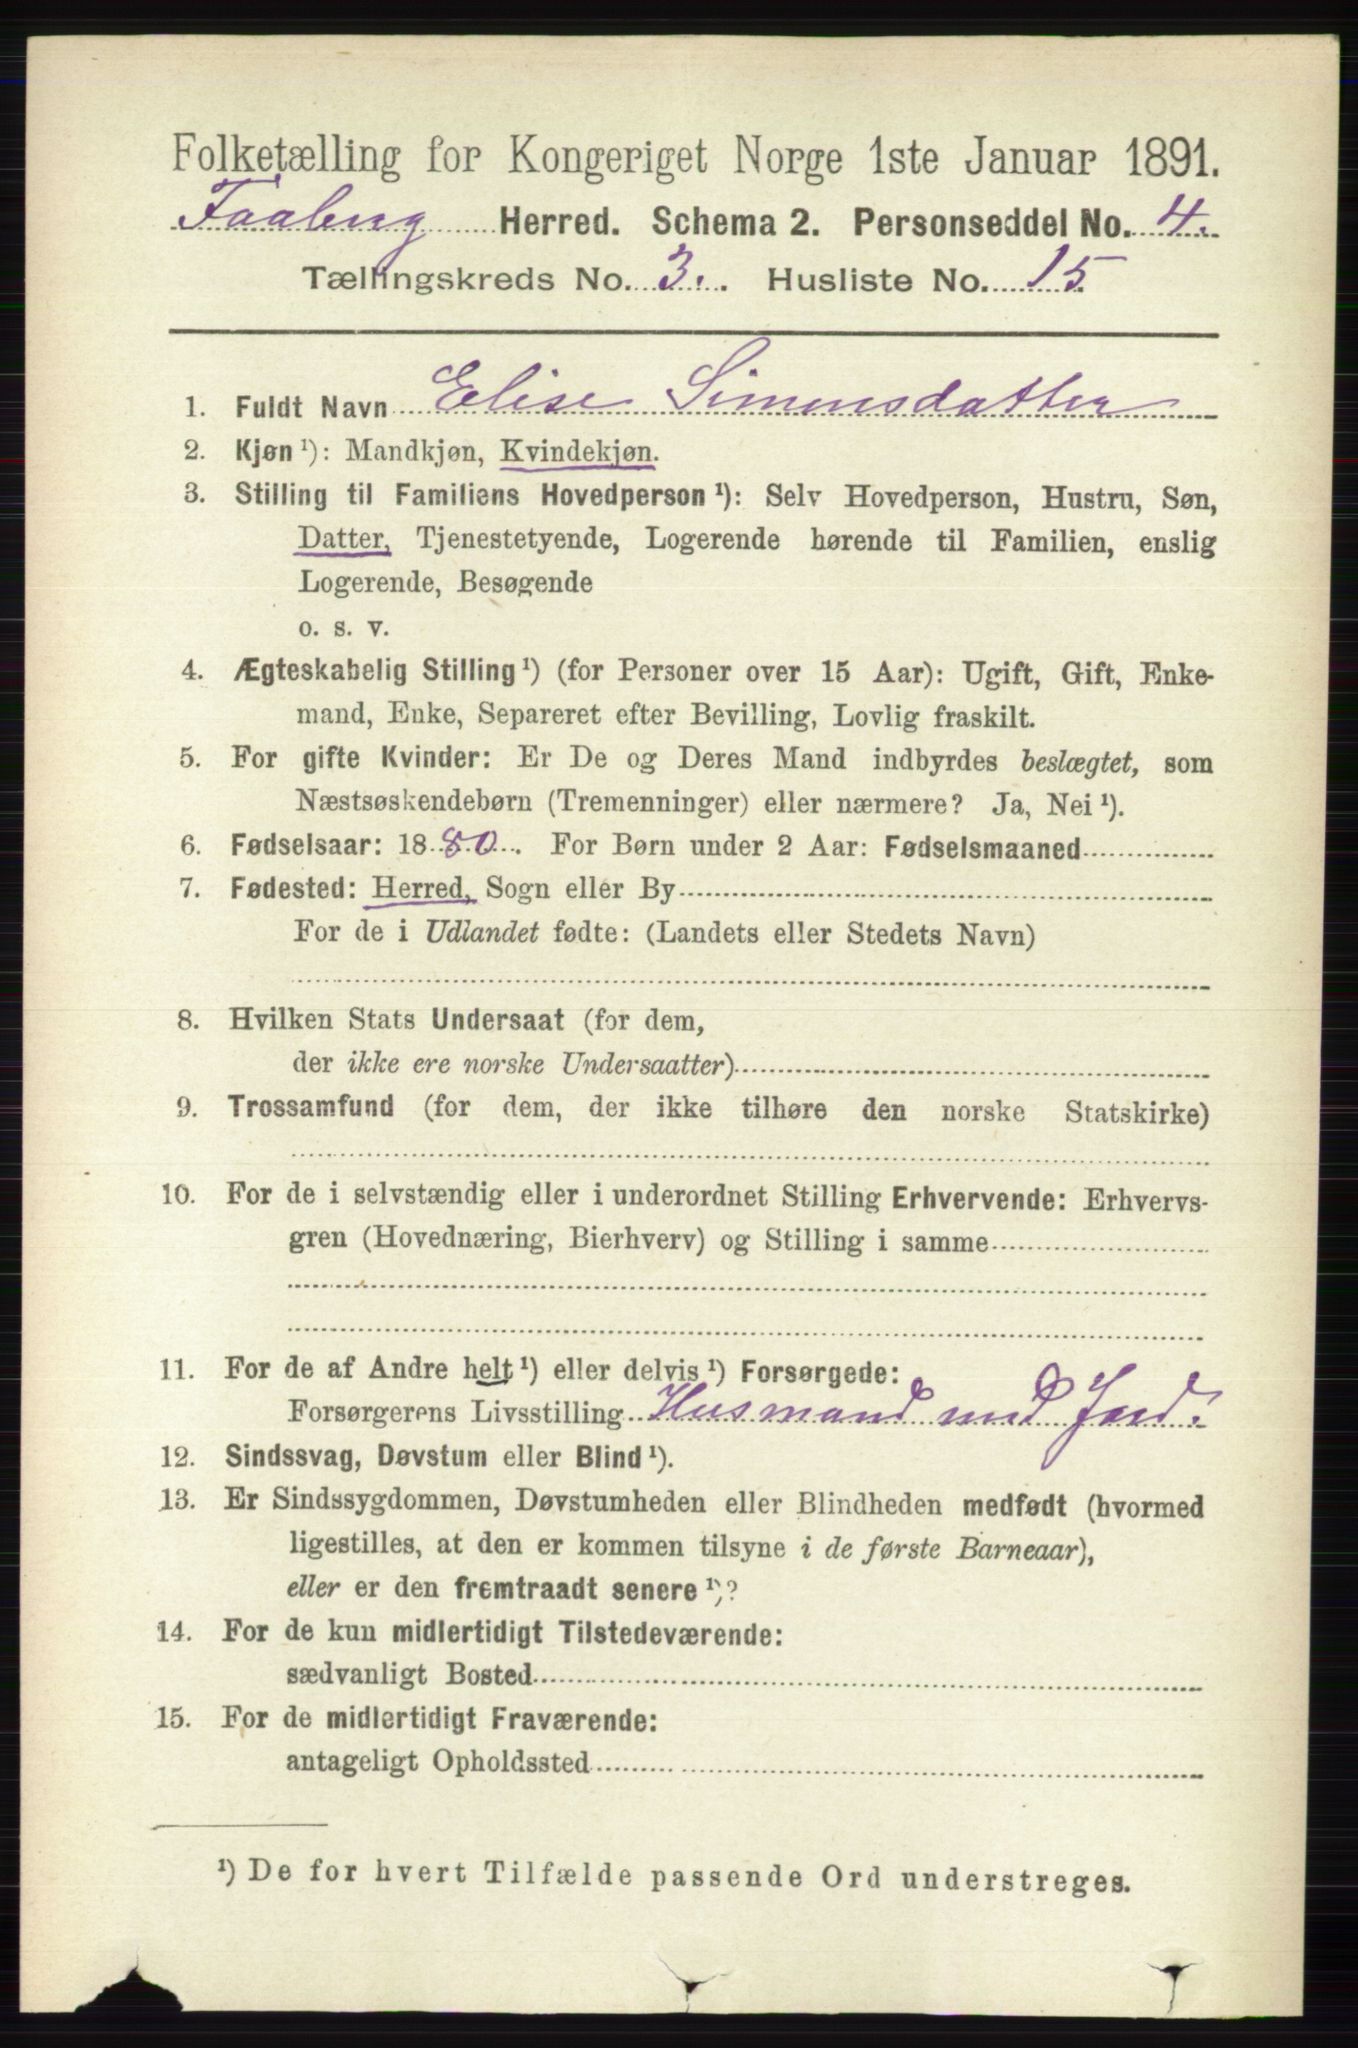 Folketælling for Kongeriget Norge 1ste Januar 1891.
Faaberg Herred. Schema 2. Personseddel No. 4.
Tællingskreds No. 3. Husliste No. 15.
1. Fuldt Navn Elise Simensdatter
2. Kjøn ¹): Mandkjøn, Kvindekjøn.
3. Stilling til Familiens Hovedperson ¹): Selv Hovedperson, Hustru, Søn,
Datter, Tjenestetyende, Logerende hørende til Familien, enslig
Logerende, Besøgende
o. s. v.
4. Ægteskabelig Stilling ¹) (for Personer over 15 Aar): Ugift, Gift, Enke-
mand, Enke, Separeret efter Bevilling, Lovlig fraskilt.
5. For gifte Kvinder: Er De og Deres Mand indbyrdes beslægtet, som
Næstsøskendebørn (Tremenninger) eller nærmere? Ja, Nei ¹).
6. Fødselsaar: 1880. For Børn under 2 Aar: Fødselsmaaned
7. Fødested: Herred, Sogn eller By
For de i Udlandet fødte: (Landets eller Stedets Navn)
8. Hvilken Stats Undersaat (for dem,
der ikke ere norske Undersaatter)
9. Trossamfund (for dem, der ikke tilhøre den norske Statskirke)
10. For de i selvstændig eller i underordnet Stilling Erhvervende: Erhvervs-
gren (Hovednæring, Bierhverv) og Stilling i samme
11. For de af Andre helt ¹) eller delvis ¹) Forsørgede:
Forsørgerens Livsstilling Husmand med Jord.
12. Sindssvag, Døvstum eller Blind ¹).
13. Er Sindssygdommen, Døvstumheden eller Blindheden medfødt (hvormed
ligestilles, at den er kommen tilsyne i de første Barneaar),
eller er den fremtraadt senere ¹)?
14. For de kun midlertidigt Tilstedeværende:
sædvanligt Bosted
15. For de midlertidigt Fraværende:
antageligt Opholdssted
¹) De for hvert Tilfælde passende Ord understreges.